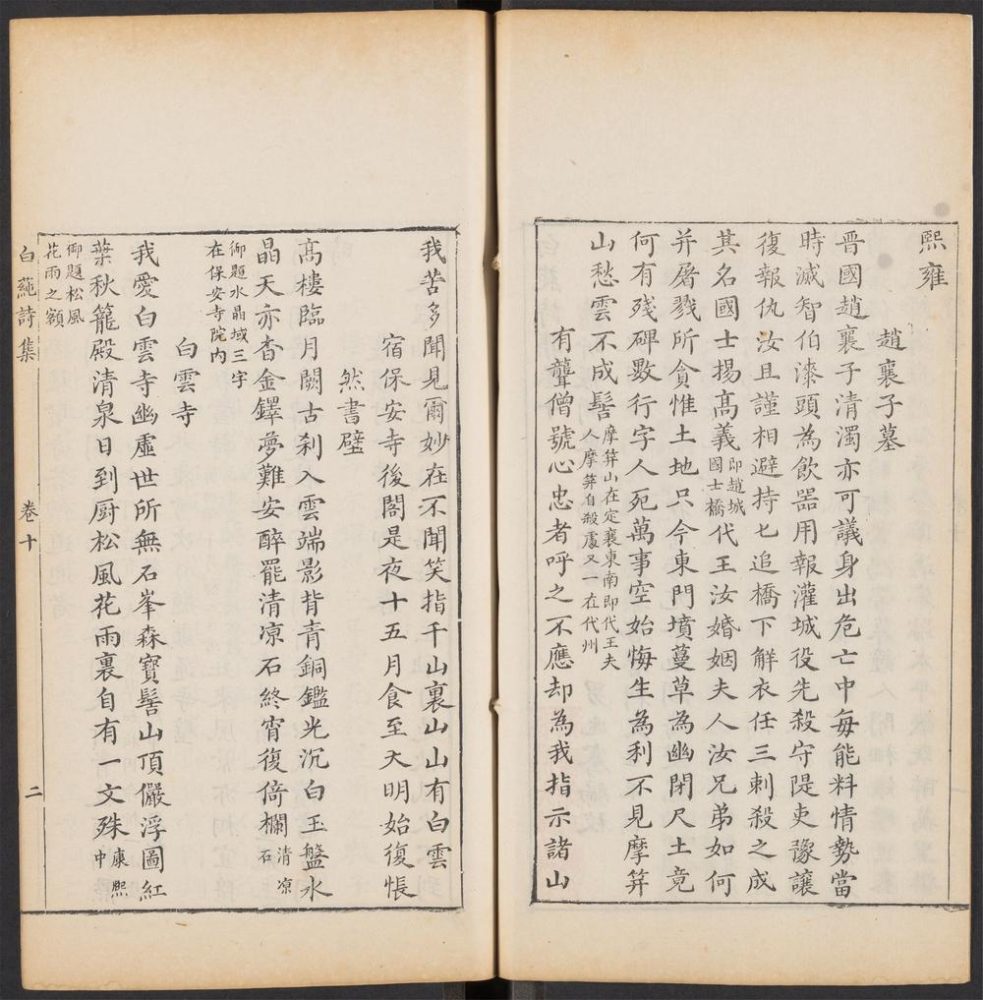 熙雍
趙襄子墓
晉國趙襄子清濁亦可議身出危亡中每能料情勢當
時滅智伯漆頭為飲器用報灌城役先殺守隄吏豫讓
復報仇汝且謹相避持匕追橋下解衣任三刺殺之成
其名國士揚高義即趙城國士橋代王汝婚姻夫人汝兄弟如何
并屠戮所貪惟土地只今東門墳蔓草為幽閉尺土竟
何有殘碑數行字人死萬事空始悔生為利不見摩笄
山愁雲不成髻摩笄山在定襄東南即代王夫人摩笄自殺處又一在代州
有聾僧號心忠者呼之不應却為我指示諸山
我苦多聞見爾妙在不聞笑指千山裏山山有白雲
宿保安寺後閣是夜十五月食至天明始復悵
然書壁
高樓臨月闕古刹入雲端影背青銅鑑光沉白玉盤水
晶天亦杳金鐸夢難安醉罷清凉石終宵復倚欄清凉石
御題水晶域三字在保安寺院內
白雲寺
我愛白雲寺幽虛世所無石峯森寶髻山頂儼浮圖紅
葉秋籠殿清泉日到厨松風花雨裏自有一文殊康熙中
御題松風花雨之額
白蒓詩集
卷十
二